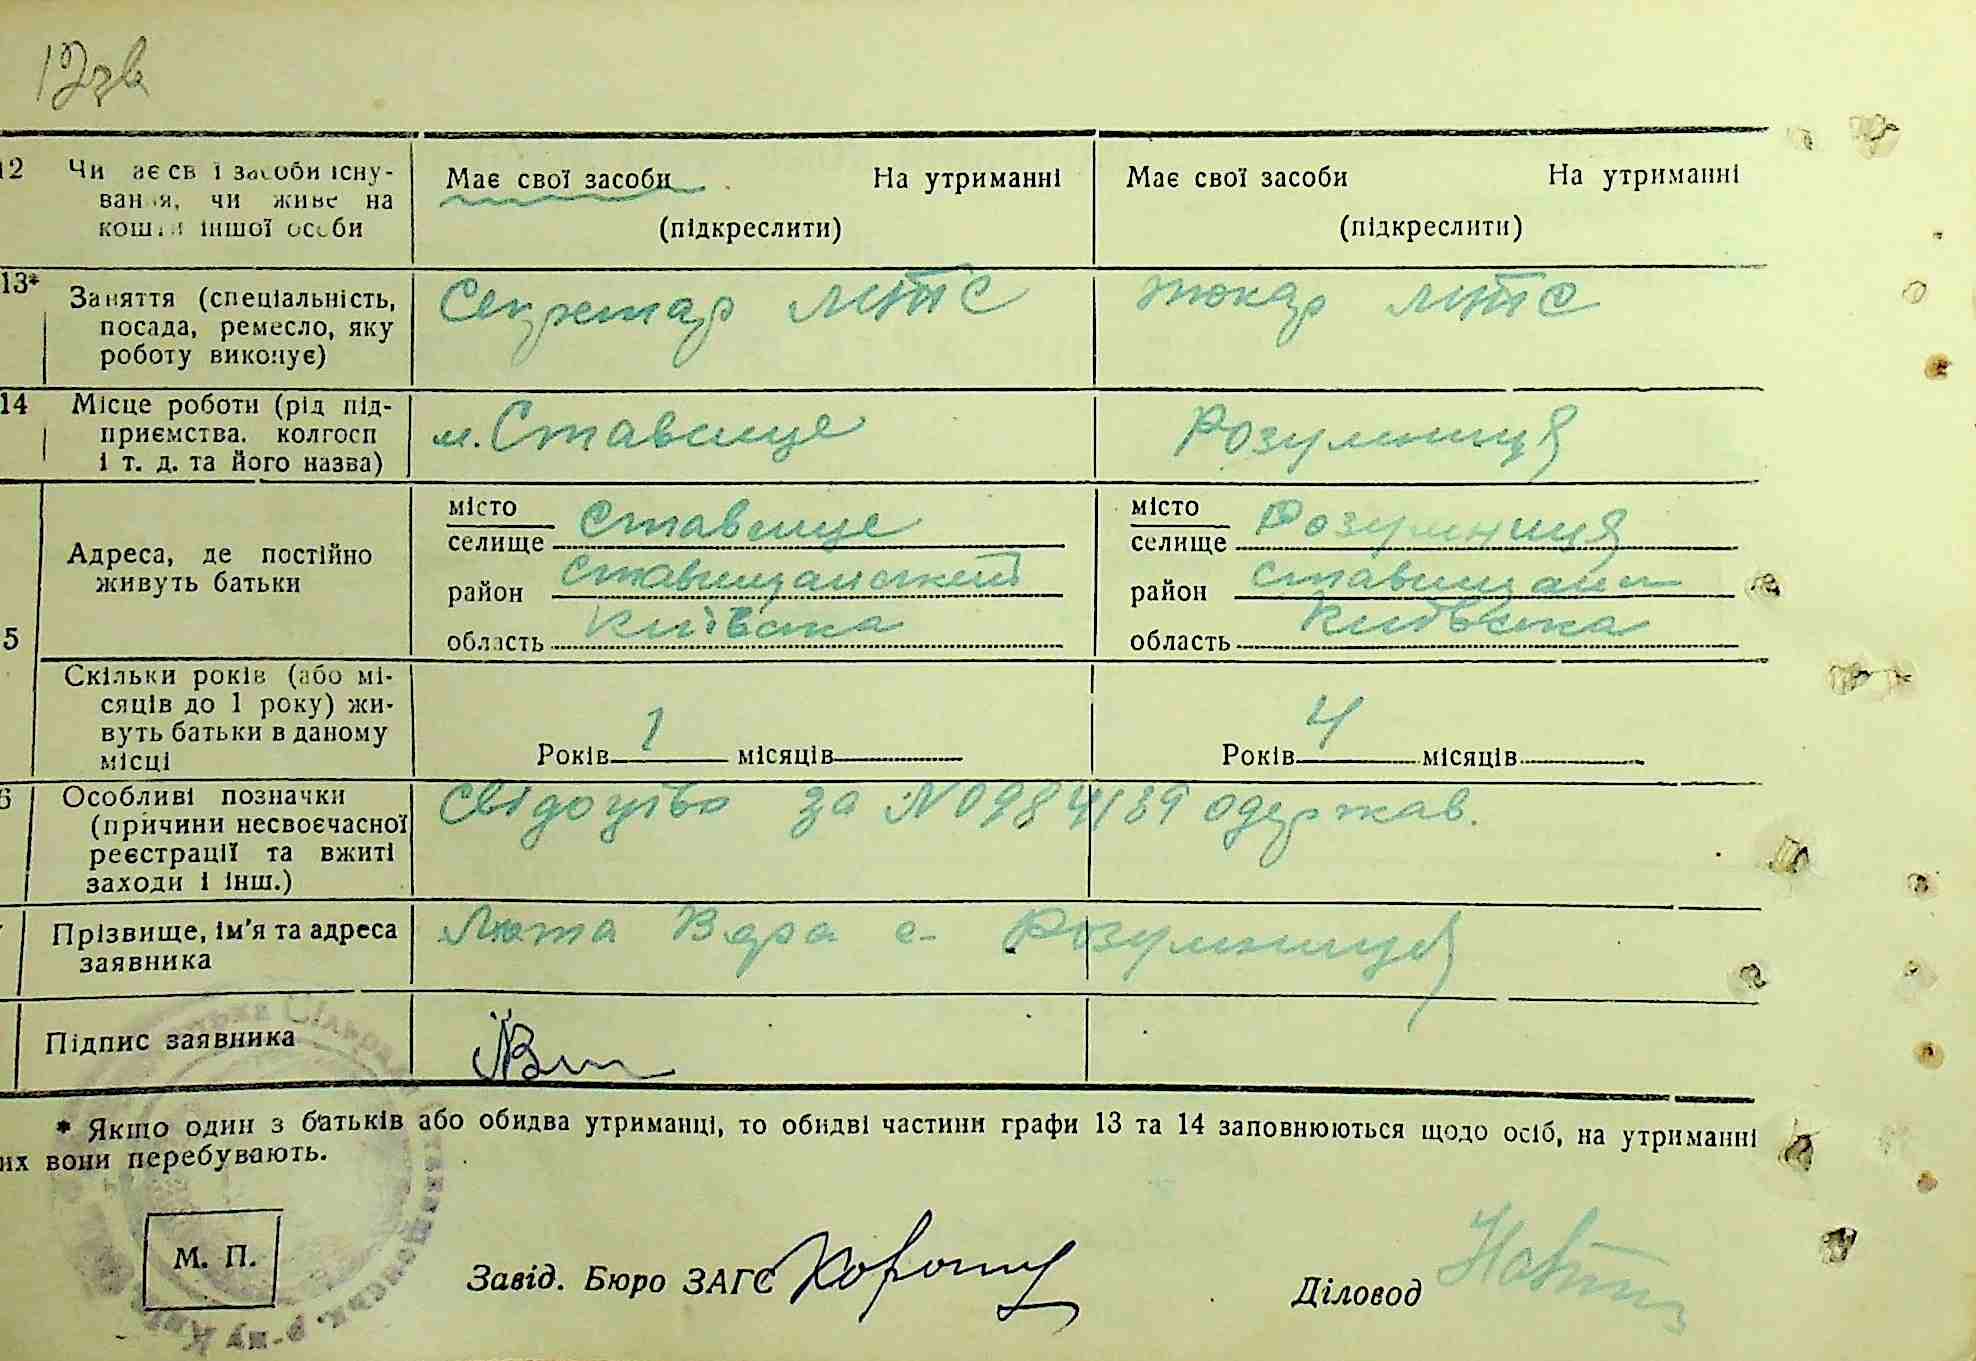 12зв
12 Чи має свої засоби існу- Має свої засоби На утриманні Має свої засоби На утриманні
вання, чи живе на
кошти іншої особи (підкреслити) (підкреслити)
13* Заняття (спеціальність, Секретар МТС токар МТС
посада, ремесло, яку
роботу виконує)
14 Місце роботи (рід під- м. Ставище Розумниця
приємства, колгосп
і т. д. та його назва)
місто місто
селище Ставище селище Розумниця
Адреса, де постійно
живуть батьки
район Ставищанський район Ставищанс
область Київська область Київська
5
Скільки років (або мі-
сяців до 1 року) жи-
вуть батьки в даному
місці Років 1 місяців Років 4 місяців
6 Особливі позначки Свідоцтво за №0984189 одержав.
(причини несвоєчасної
реєстрації та вжиті
заходи і інш.)
Прізвище, ім'я та адреса Люта Вера с- Розумниця
заявника
Підпис заявника
* Якщо один з батьків або обидва утриманці, то обидві частини графи 13 та 14 заповнюються щодо осіб, на утриманні
их вони перебувають.
М. П.
Завід. Бюро ЗАГС Діловод
Сільрада Ставищанськ. р-ну